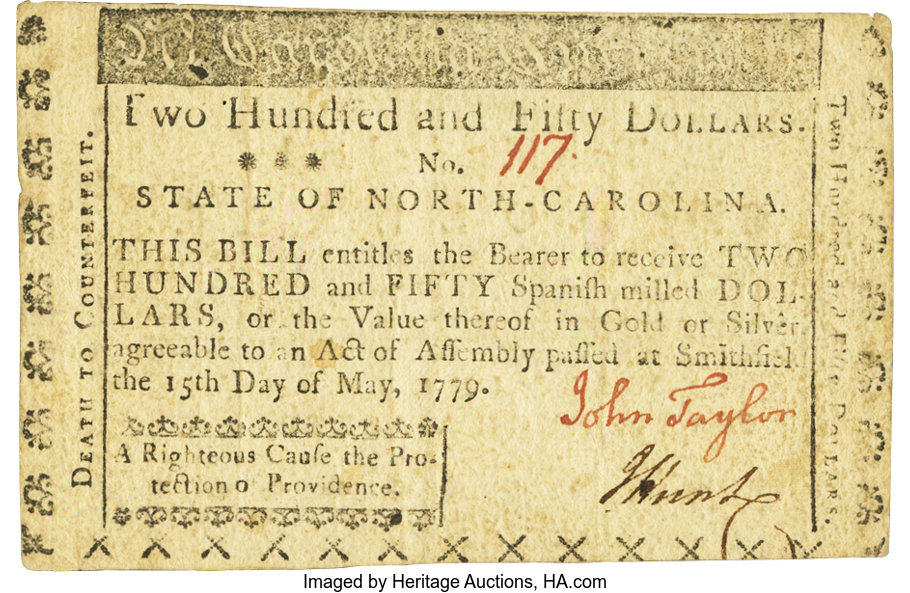 Two Hundred and Fifty DOLLARS.
No. 117.
STATE OF NORTH-CAROLINA.
THIS BILL entitles the Bearer to receive TWO
HUNDRED and FIFTY Spaniſh milled DOL-
LARS, or the Value thereof in Gold or Silver,
agreeable to an Act of Aſſembly paſſed at Smithfield
the 15th Day of May, 1779.
John Taylor
JHunt
A Righteous Cauſe the Pro-
tection of Providence.
DEATH TO COUNTERFEIT.
Two Hundred and Fifty DOLLARS.
Imaged by Heritage Auctions, HA.com